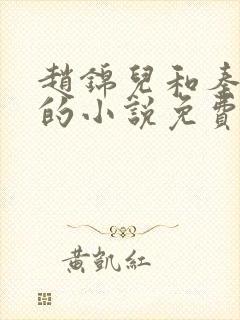 趙錦兒和秦
的小說免費
黃凱紅